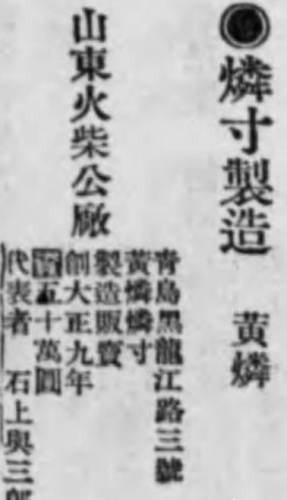 ◉燐寸製造 黄燐
山東火柴公廠
青島黑龍江路三號
黄燐燐寸
製造販賣
創大正九年
五十萬圓
代表者 石上與三郎